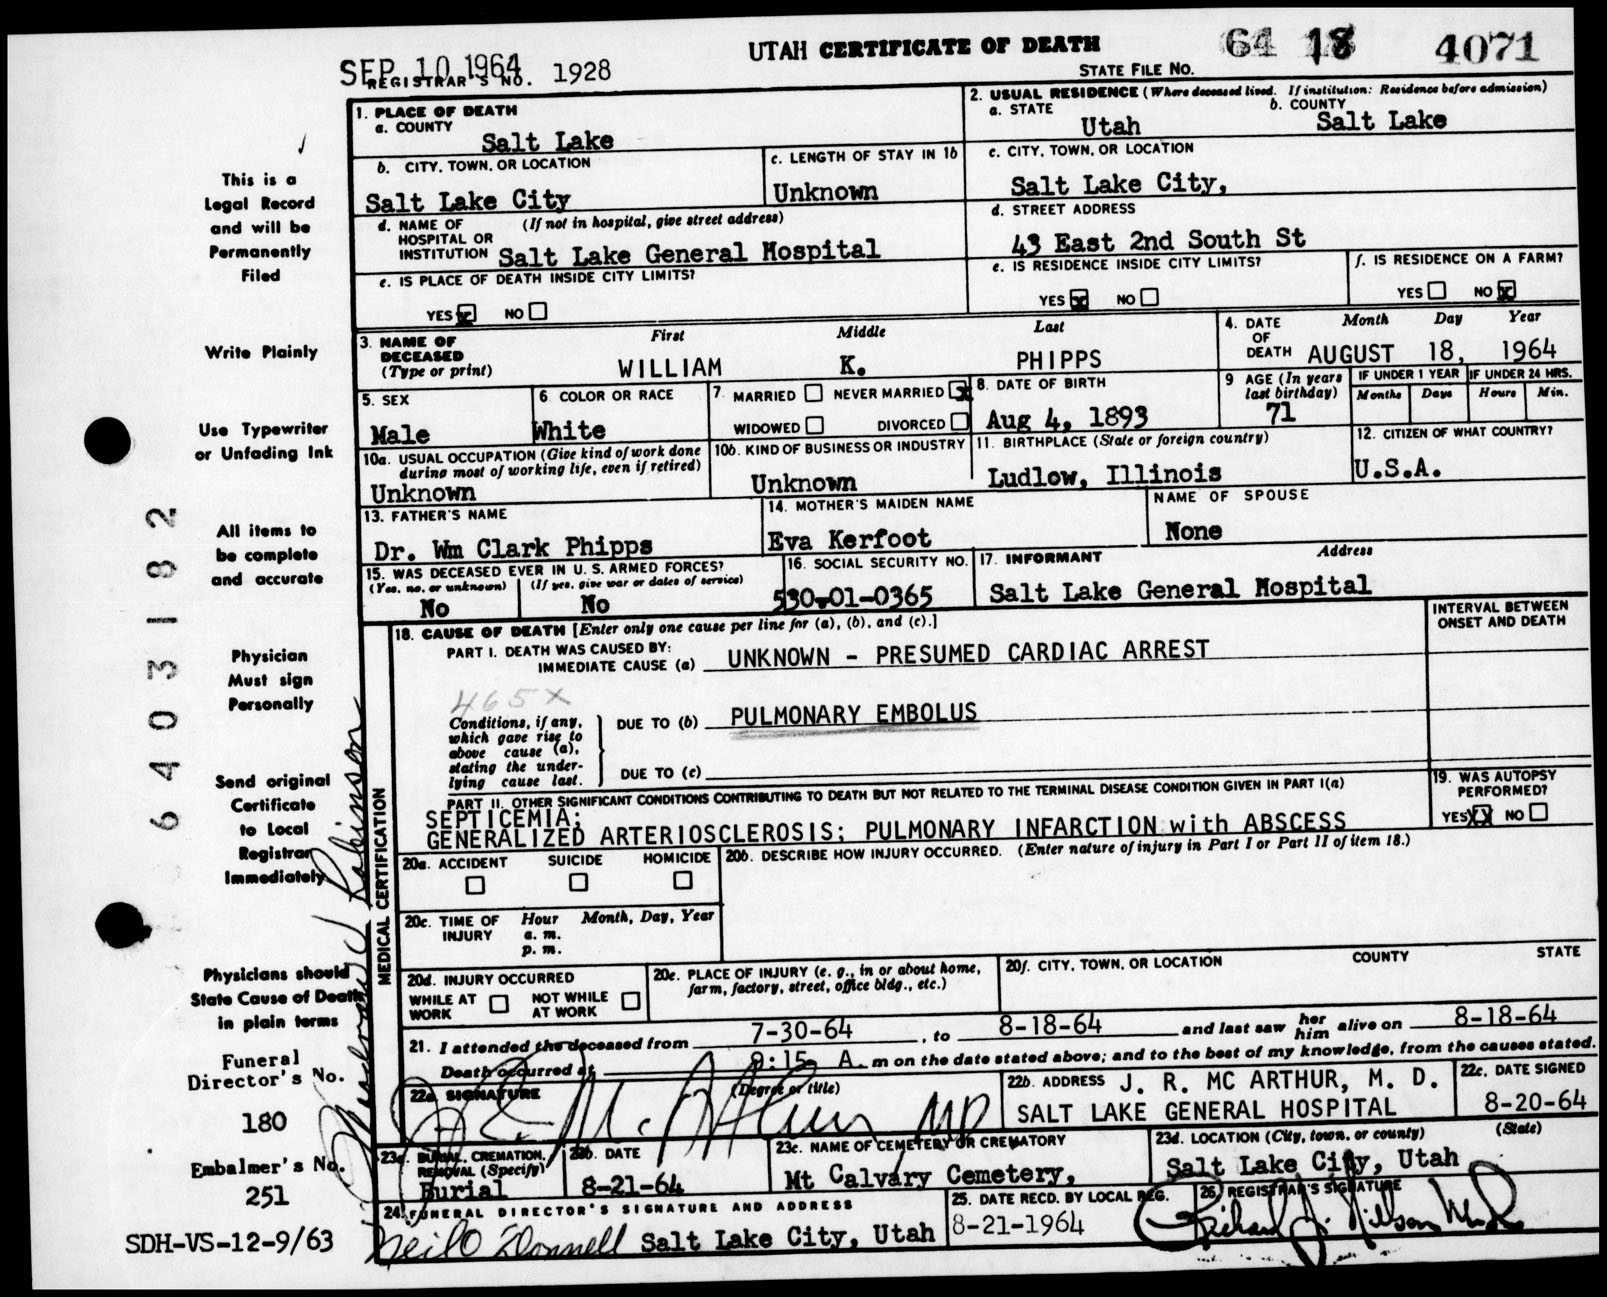 UTAH CERTIFICATE OF DEATH
64 18 4071
STATE FILE NO.
SEP 10 1964
REGISTRAR'S NO. 1928
1. PLACE OF DEATH
a. COUNTY
Salt Lake
b. CITY, TOWN, OR LOCATION
Salt Lake City
c. LENGTH OF STAY IN 1b
Unknown
d. NAME OF HOSPITAL OR INSTITUTION (If not in hospital, give street address)
Salt Lake General Hospital
e. IS PLACE OF DEATH INSIDE CITY LIMITS?
YES x NO
2. USUAL RESIDENCE (Where deceased lived. If institution: Residence before admission)
a. STATE
Utah
b. COUNTY
Salt Lake
c. CITY, TOWN, OR LOCATION
Salt Lake City,
d. STREET ADDRESS
43 East 2nd South St
e. IS RESIDENCE INSIDE CITY LIMITS?
YES x NO
f. IS RESIDENCE ON A FARM?
YES NO x
3. NAME OF DECEASED (Type or print)
First Middle Last
WILLIAM K. PHIPPS
4. DATE OF DEATH
Month Day Year
AUGUST 18, 1964
5. SEX
Male
6 COLOR OR RACE
White
7. MARRIED NEVER MARRIED x
WIDOWED DIVORCED
8. DATE OF BIRTH
Aug 4, 1893
9 AGE (In years last birthday)
71
IF UNDER 1 YEAR
Months Days
IF UNDER 24 HRS.
Hours Min.
10a. USUAL OCCUPATION (Give kind of work done during most of working life, even if retired)
Unknown
10b. KIND OF BUSINESS OR INDUSTRY
Unknown
11. BIRTHPLACE (State or foreign country)
Ludlow, Illinois
12. CITIZEN OF WHAT COUNTRY?
U.S.A.
13. FATHER'S NAME
Dr. Wm Clark Phipps
14. MOTHER'S MAIDEN NAME
Eva Kerfoot
NAME OF SPOUSE
None
15. WAS DECEASED EVER IN U. S. ARMED FORCES?
(Yes, no, or unknown) (If yes, give war or dates of service)
No No
16. SOCIAL SECURITY NO.
530-01-0365
17. INFORMANT Address
Salt Lake General Hospital
MEDICAL CERTIFICATION
18. CAUSE OF DEATH [Enter only one cause per line for (a), (b), and (c).]
INTERVAL BETWEEN ONSET AND DEATH
PART I. DEATH WAS CAUSED BY:
IMMEDIATE CAUSE (a) UNKNOWN - PRESUMED CARDIAC ARREST
465X
Conditions, if any, which gave rise to above cause (a), stating the underlying cause last.
DUE TO (b) PULMONARY EMBOLUS
DUE TO (c)
PART II. OTHER SIGNIFICANT CONDITIONS CONTRIBUTING TO DEATH BUT NOT RELATED TO THE TERMINAL DISEASE CONDITION GIVEN IN PART I(a)
SEPTICEMIA;
GENERALIZED ARTERIOSCLEROSIS; PULMONARY INFARCTION with ABSCESS
19. WAS AUTOPSY PERFORMED?
YES XX NO
20a. ACCIDENT SUICIDE HOMICIDE
20b. DESCRIBE HOW INJURY OCCURRED. (Enter nature of injury in Part I or Part II of item 18.)
20c. TIME OF INJURY
Hour Month, Day, Year
a. m.
p. m.
20d. INJURY OCCURRED
WHILE AT WORK NOT WHILE AT WORK
20e. PLACE OF INJURY (e. g., in or about home, farm, factory, street, office bldg., etc.)
20f. CITY, TOWN, OR LOCATION COUNTY STATE
21. I attended the deceased from 7-30-64, to 8-18-64 and last saw her him alive on 8-18-64
Death occurred at 9:15 A. m on the date stated above; and to the best of my knowledge, from the causes stated.
22a. SIGNATURE (Degree or title)
J R McArthur MD
22b. ADDRESS J. R. MC ARTHUR, M. D.
SALT LAKE GENERAL HOSPITAL
22c. DATE SIGNED
8-20-64
23a. BURIAL, CREMATION, REMOVAL (Specify)
Burial
23b. DATE
8-21-64
23c. NAME OF CEMETERY OR CREMATORY
Mt Calvary Cemetery,
23d. LOCATION (City, town, or county) (State)
Salt Lake City, Utah
24. FUNERAL DIRECTOR'S SIGNATURE AND ADDRESS
Neil O'Donnell Salt Lake City, Utah
25. DATE RECD. BY LOCAL REG.
8-21-1964
26. REGISTRAR'S SIGNATURE
This is a
Legal Record
and will be
Permanently
Filed
Write Plainly
Use Typewriter
or Unfading Ink
All items to
be complete
and accurate
Physician
Must sign
Personally
Send original
Certificate
to Local
Registrar
Immediately
Physicians should
State Cause of Death
in plain terms
Funeral
Director's No.
180
Embalmer's No.
251
SDH-VS-12-9/63
6403182
Robinson